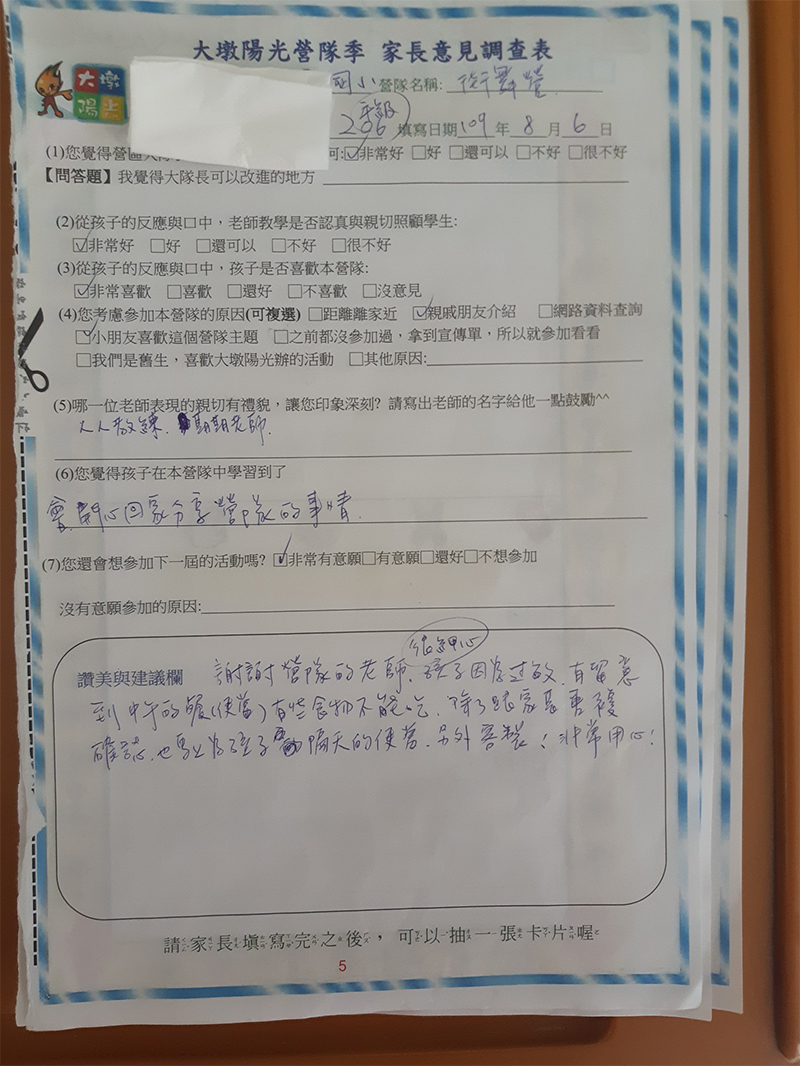 大墩陽光營隊季 家長意見調查表
大墩
陽光
國小營隊名稱:街舞營
2年級 填寫日期109年8月6日
(1)您覺得營區大隊 可:☑非常好 □好 □還可以 □不好 □很不好
【問答題】我覺得大隊長可以改進的地方
(2)從孩子的反應與口中,老師教學是否認真與親切照顧學生:
☑非常好 □好 □還可以 □不好 □很不好
(3)從孩子的反應與口中,孩子是否喜歡本營隊:
☑非常喜歡 □喜歡 □還好 □不喜歡 □沒意見
(4)您考慮參加本營隊的原因(可複選) □距離離家近 ☑親戚朋友介紹 □網路資料查詢
☑小朋友喜歡這個營隊主題 □之前都沒參加過,拿到宣傳單,所以就參加看看
□我們是舊生,喜歡大墩陽光辦的活動 □其他原因:
(5)哪一位老師表現的親切有禮貌,讓您印象深刻? 請寫出老師的名字給他一點鼓勵^^
人人教練、期期老師.
(6)您覺得孩子在本營隊中學習到了
會開心回家分享營隊的事情.
(7)您還會想參加下一屆的活動嗎? ☑非常有意願□有意願□還好□不想參加
沒有意願參加的原因:
很細心
讚美與建議欄 謝謝營隊的老師、孩子因為过敏、有留意
到中午的餐(便當)有些食物不能吃、除了跟家長重複
確認、也馬上為孩子隔天的便當、另外客製!非常用心!
請家長填寫完之後,可以抽一張卡片喔
5